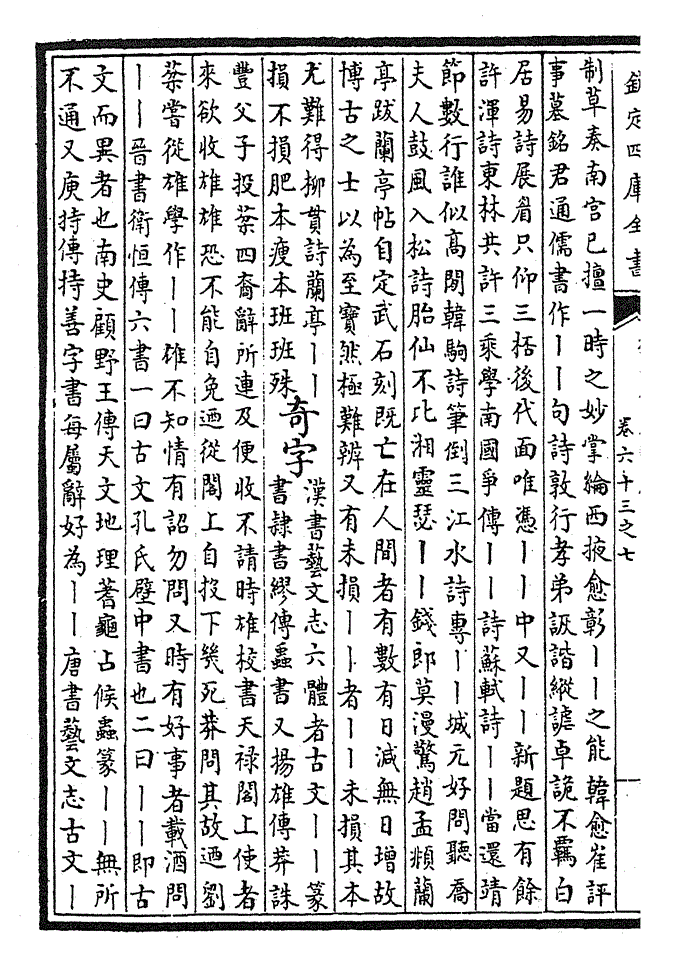 欽定四庫全書
卷六十三之七
制草奏南宫已擅一時之妙掌綸西掖愈彰丨丨之能韓愈崔評
事墓銘君通儒書作丨丨句詩敦行孝弟詼諧縱謔卓詭不羈白
居易詩展眉只仰三栝後代面唯憑丨丨中又丨丨新題思有餘
許渾詩東林共許三乘學南國爭傳丨丨詩蘇軾詩丨丨當還靖
節數行誰似高閒韓駒詩筆倒三江水詩專丨丨城元好問聽喬
夫人鼓風入松詩胎仙不比湘靈瑟丨丨錢郎莫漫驚趙孟頫蘭
亭跋蘭亭帖自定武石刻既亡在人間者有數有日減無日增故
博古之士以為至寶然極難辨又有未損丨丨者丨丨未損其本
尤難得柳貫詩蘭亭丨丨
損不損肥本瘦本班班殊
奇字
漢書藝文志六體者古文丨丨篆
書隸書繆傳蟲書又揚雄傳莽誅
豐父子投棻四裔辭所連及便收不請時雄校書天禄閣上使者
來欲收雄雄恐不能自免迺從閣上自投下幾死莽問其故迺劉
棻嘗從雄學作丨丨雄不知情有詔勿問又時有好事者載酒問
丨丨晉書衛恒傳六書一曰古文孔氏壁中書也二曰丨丨即古
文而異者也南史顧野王傳天文地理蓍龜占候蟲篆丨丨無所
不通又庾持傳持善字書每屬辭好為丨丨唐書藝文志古文丨